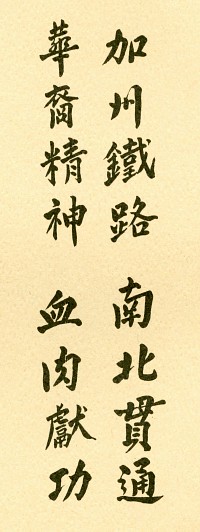 加州鐵路 南北貫通
華裔精神 血肉獻功